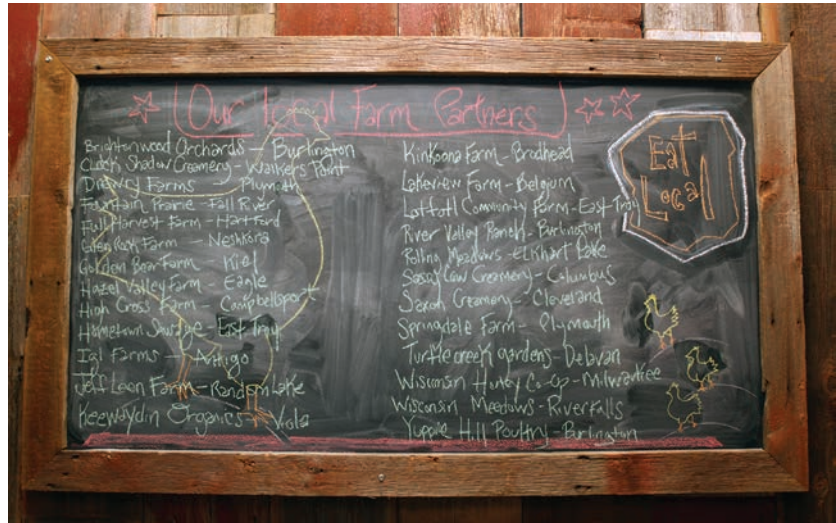 Our Local Farm Partners
Brightonwood Orchards - Burlington
Clock Shadow Creamery - Walkers Point
Farms - Plymoth
Fountain Prairie - Fall River
Full Harvest Farm - Hartford
Glen Rock Farm - Neshkora
Golden Bear Farm - Kiel
Hazel Valley Farm - Eagle
High Cross Farm - Campbellsport
Hometown Sausage - East Troy
Igl Farms - Antigo
Jeff Leen Farm - Random Lake
Keewaydin Organics - Viola
Kinkoona Farm - Brodhead
Lakeview Farm - Belgium
Community Farm - East Troy
River Valley Ranch - Burlington
Rolling Meadows - Elkhart Lake
Sassy Cow Creamery - Columbus
Saxon Creamery - Cleveland
Springdale Farm - Plymouth
Turtlecreek gardens - Delavan
Wisconsin Honey Co-op - Milwaukee
Wisconsin Meadows - River Falls
Yuppie Hill Poultry - Burlington
Eat
Local